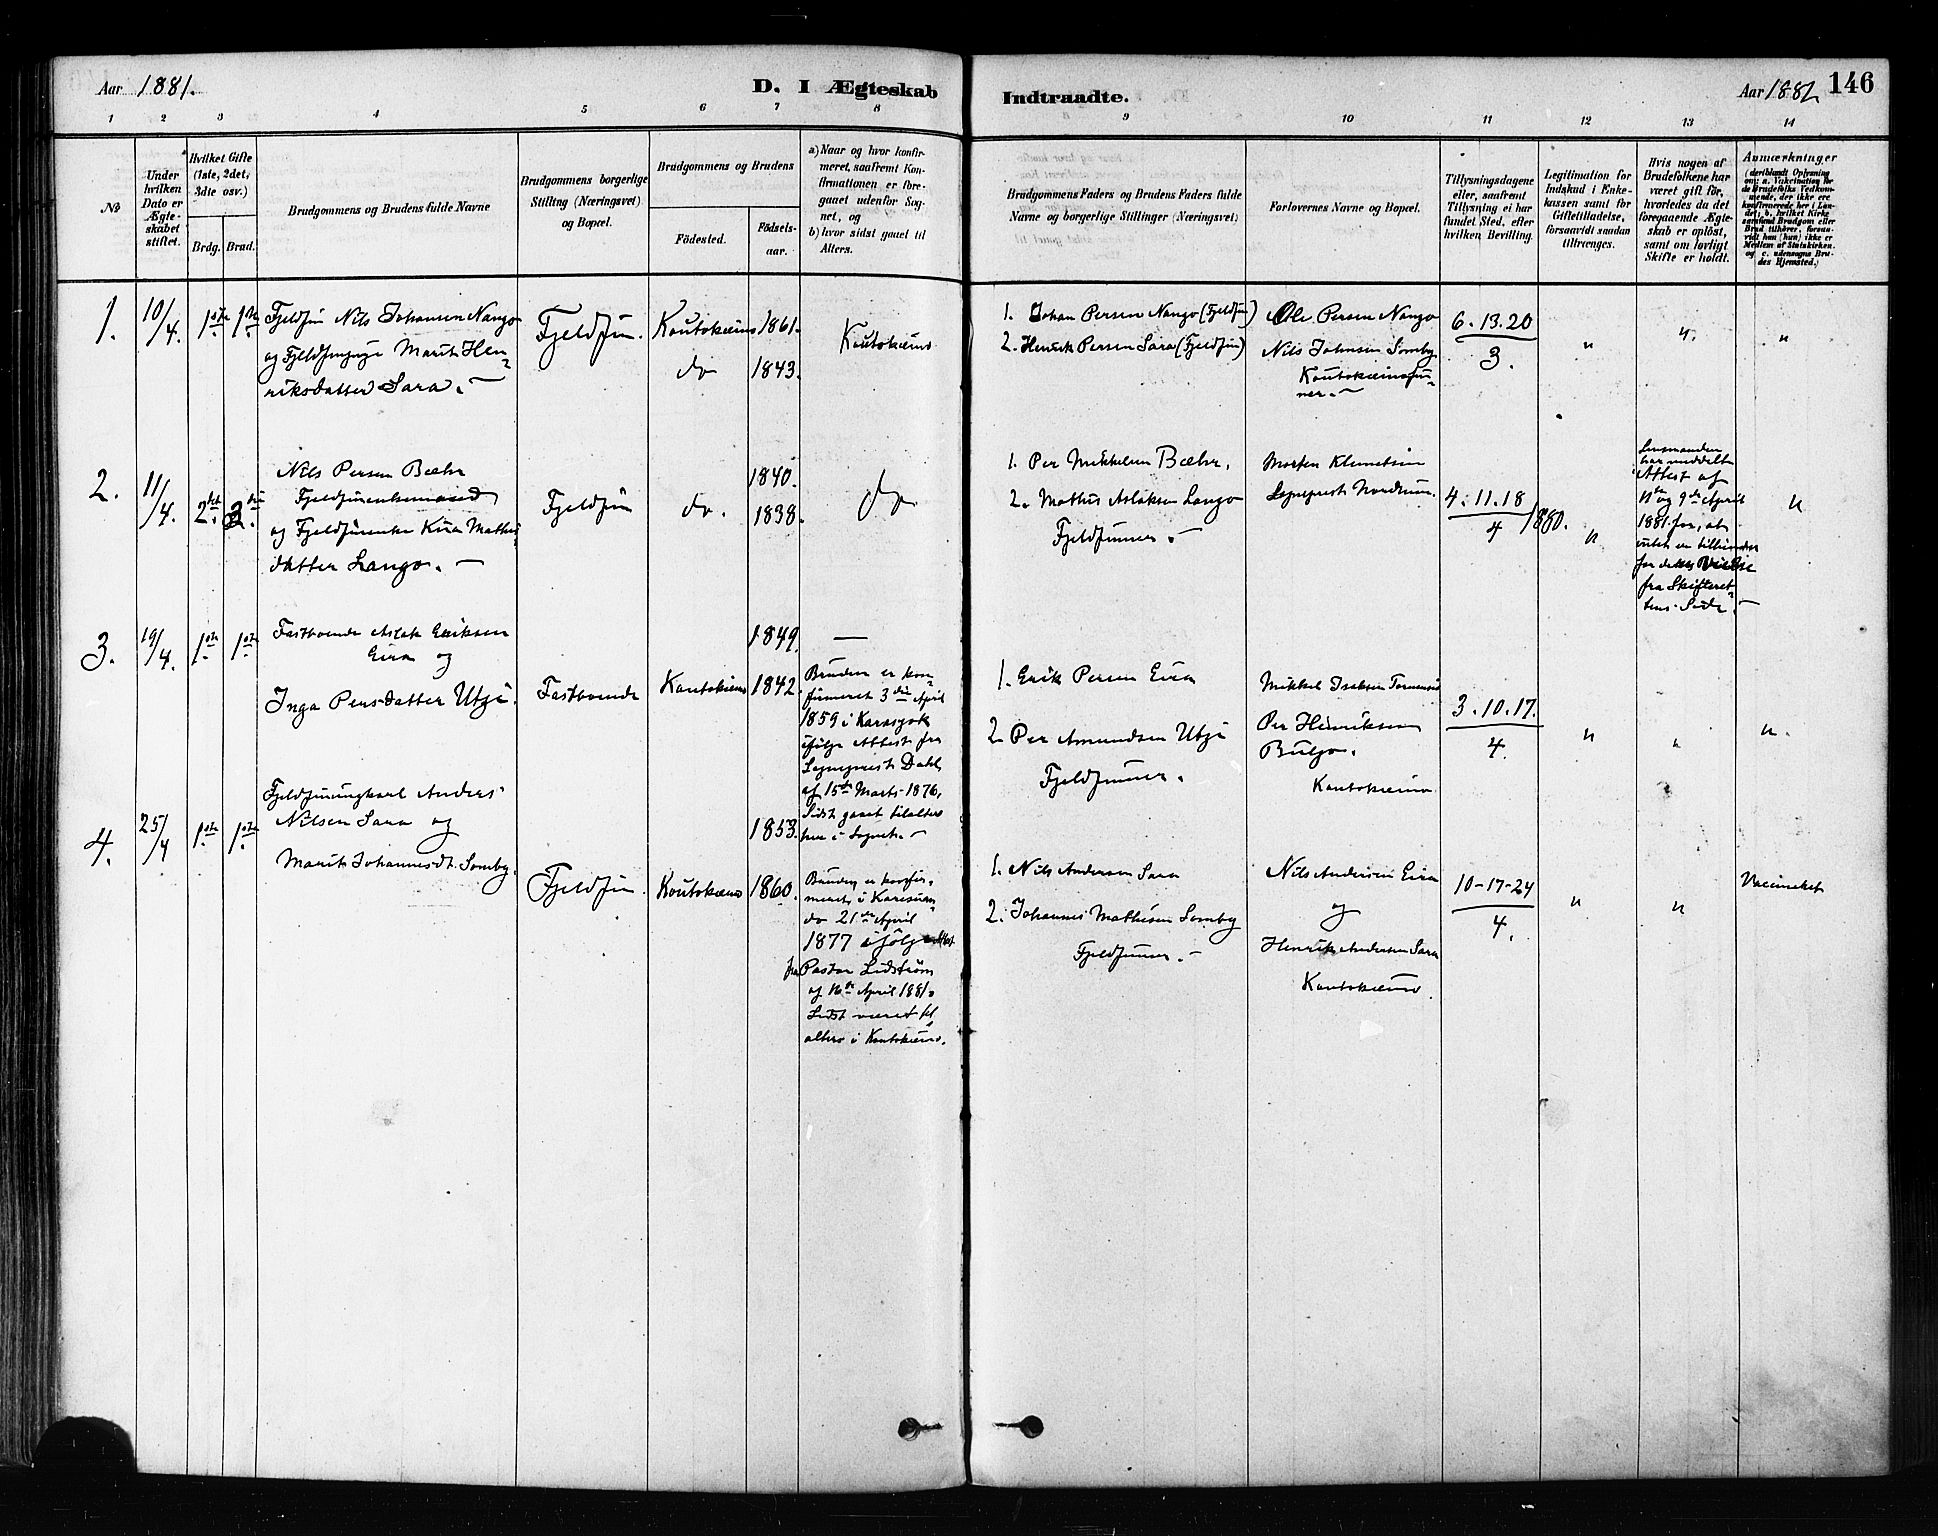 Aar 1881.
D. I Ægteskab
Indtraadte.
Aar 1882
146
1 2 3 4 5 6 7 8 9 10 11 12 13 14
№
Under
hvilken
Dato er
Ægte-
skabet
stiftet.
Hvilket Gifte
(1ste, 2det,
3die osv.)
Brdg. Brud.
Brudgommens og Brudens fulde Navne
Brudgommens borgerlige
Stilling (Næringsvei)
og Bopæl.
Brudgommens og Brudens
Födested.
Födsels-
aar.
a) Naar og hvor konfir-
meret, saafremt Kon-
firmationen er fore-
gaaet udenfor Sog-
net, og
b) hvor sidst gaaet til
Alters.
Brudgommens Faders og Brudens Faders fulde
Navne og borgerlige Stillinger (Næringsvei)
Forlovernes Navne og Bopæl.
Tillysningsdagene
eller, saafremt
Tillysning ei har
fundet Sted, efter
hvilken Bevilling.
Legitimation for
Indskud i Enke-
kassen samt for
Giftetilladelse,
forsaavidt saadan
tiltrænges.
Hvis nogen af
Brudefolkene har
været gift för,
hvorledes da det
foregaaende Ægte-
skab er oplöst,
samt om lovligt
Skifte er holdt.
Anmærkninger
(deriblandt Oplysning
om: a. Vakcination for
de Brudefolks Vedkom-
mende, der ikke ere
konfirmerede her i Lan-
det; b. hvilket Kirke-
samfund Brudgom eller
Brud tilhörer, forsaa-
vidt han (hun) ikke er
Medlem af Statskirken,
og c. udensogns Bru-
des Hjemsted.)
1. 10/4. 1ste 1ste
Fjeldfin Nils Johansen Nango
og Fjeldfinpige Marit Hen-
riksdatter Sara. —
Fjeldfin.
Koutokeino 1861.
do 1843.
Koutokeino
1. Johan Persen Nango (Fjeldfin)
2. Henrik Persen Sara (Fjeldfin)
Ole Persen Nango
Nils Johnsen Somby
Koutokeinofin-
ner. —
6. 13. 20
3.
" " "
2. 11/4. 2det 3die
Nils Persen Bæhr
Fjeldfinenkemand
og Fjeldfinenke Kirs Mathis-
datter Lango. —
Fjeldfin
do.
1840.
1838.
do
1. Per Mikkelsen Bæhr.
2. Mathis Aslaksen Lango
Fjeldfinner. —
Morten Klemetsen
Sogneprest Nordrum.
4. 11. 18
4 /1880.
"
Lensmanden
har meddelt
Attest af
11te og 9de April
1881 for, at
intet er tilhinder
for dette Vielse
fra Skifteret-
tens Side. —
"
3. 19/4. 1ste 1ste
Fastboende Aslak Eriksen
Eira og
Inga Persdatter Utsi.
Fastboende
Koutokeino
1849.
1842.
—
Bruden er kon-
firmeret 3die April
1859 i Karasjok
ifölge Attest fra
Sogneprest Dahl
af 15de Marts 1876,
Sidst gaaet tilalters
her i Sognet. —
1. Erik Persen Eira
2. Per Amundsen Utsi
Fjeldfinner.
Mikkel Isaksen Tornensis
Per Henriksen
Buljo.
Koutokeino
3. 10. 17.
4.
" " ".
4. 25/4 1ste 1ste
Fjeldfinungkarl Anders
Nilsen Sara og
Marit Johannesdt. Somby.
Fjeldfin.
Koutokeino
1853.
1860.
Bruden er konfir-
meret i Karesuan-
do 21de April
1877 ifölge Attest
fra Pastor Lidström
af 16de April 1881.
Sidst været til
alters i Koutokeino.
1. Nils Andersen Sara
2. Johannes Mathisen Somby
Fjeldfinner. —
Nils Andersen Eira
og
Henrik Andersen Sara
Koutokeino.
10-17-24
4.
" "
Vaccineret